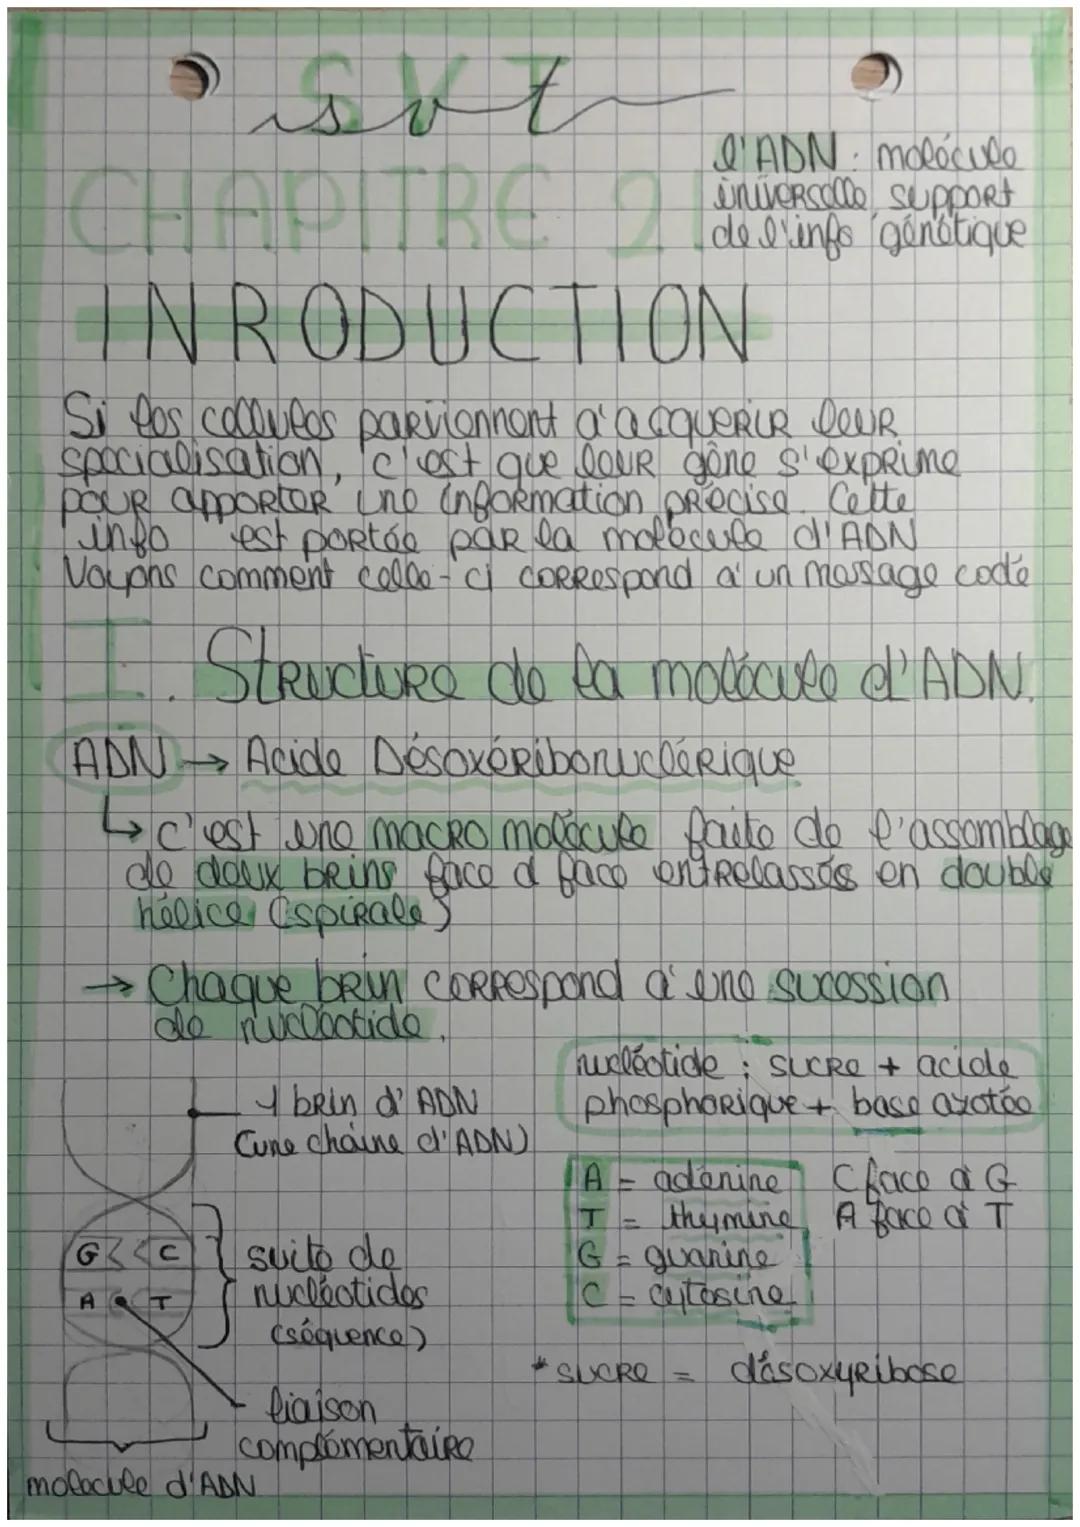 SVT
svt
CHAPITRE 2
l'ADN : molécule
universelle, support
de l'info génétique
INRODUCTION
Si les cellules parviennent à acquérir leur
spécialisation, c'est que leur gène s'exprime
pour apporter une information précise. Cette
info est portée par la molécule d'ADN
Voyons comment celle-ci correspond à un message codé
I. Structure de la molécule d'ADN.
ADN → Acide Désoxéribonuclérique
↳ c'est une macro molécule faite de l'assemblage
de deux brins face à face entrelassés en double
hélice (spirale)
→ Chaque brin correspond à une sucession
de nucléotide.
nucléotide : sucre + acide
phosphorique + base azotée
1 brin d'ADN
(une chaîne d'ADN)
A = adénine C face à G
T = thymine A face à T
G = guanine
C = cytosine
G C
A T
suite de
nucléotides
(séquence)
* sucre = désoxyribose
liaison
complémentaire
molecule d'ADN